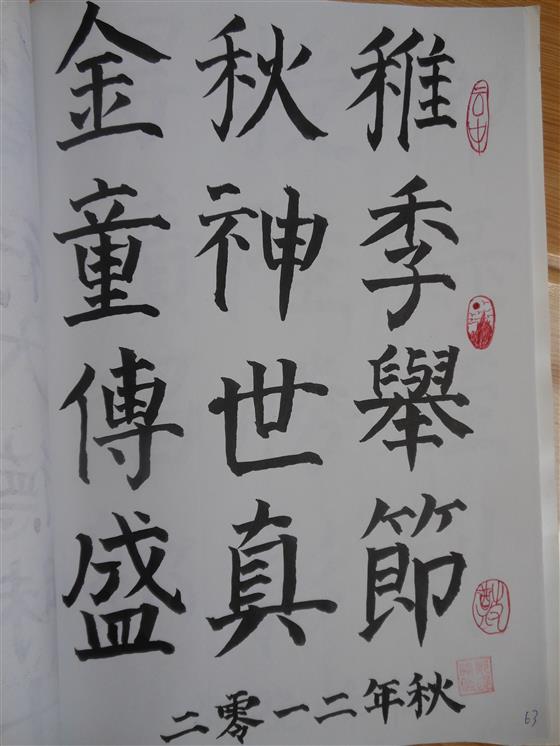 稚季舉節
秋神世真
金童傳盛
二零一二年秋
云中
63